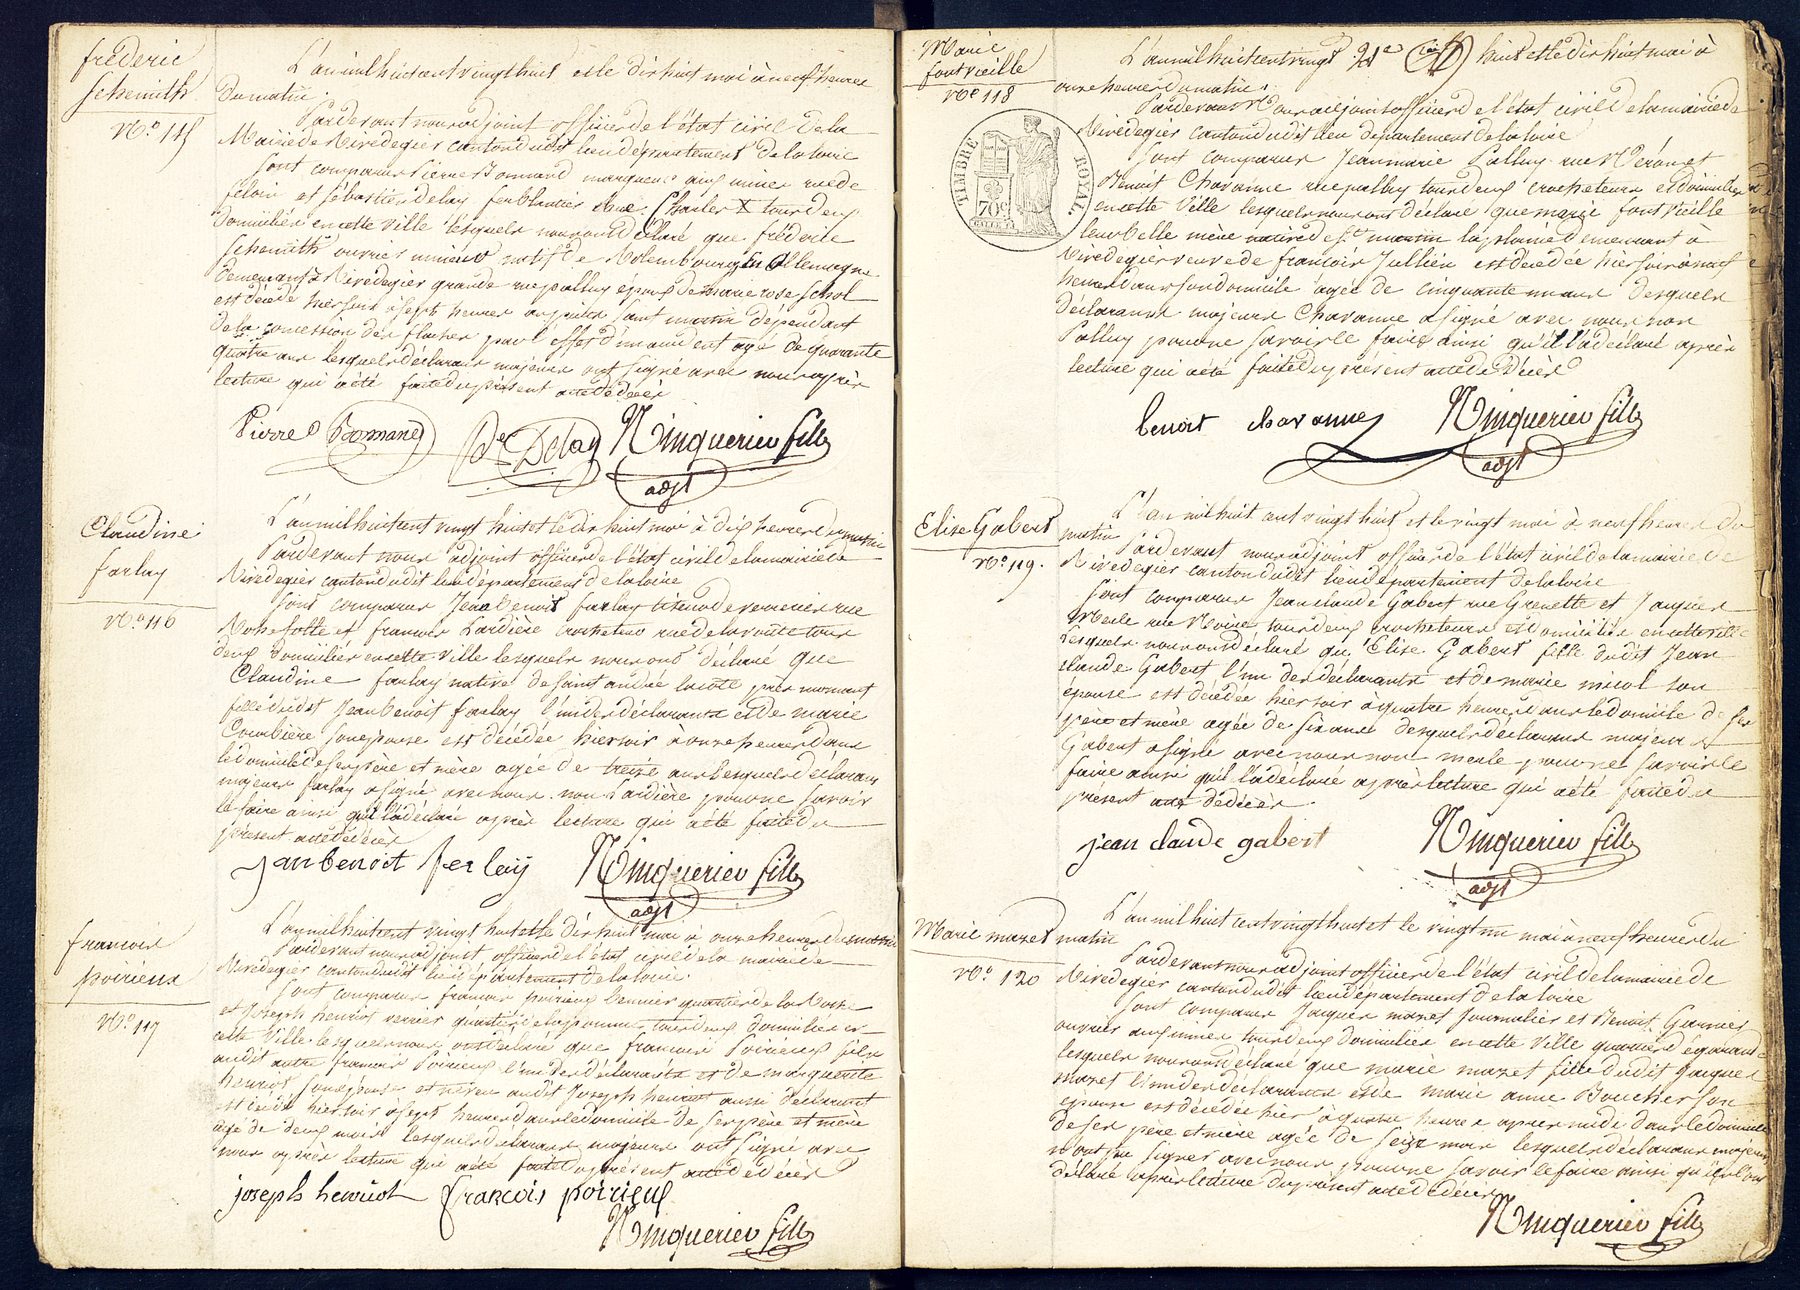 frédéric
schemith
No. 115
L'an mil huit cent vingt huit et le dix huit mai à neuf heures
du matin.
Pardevant nous adjoint officier de l'état civil de la
Mairie de Rivedegier canton dudit lieu département de la loire
sont comparus Pierre Bonnard marqueur aux mines rue de
féloin et sébastien delay ferblantier rue Charles X tous deux
domiciliés en cette ville lesquels nous ont déclaré que frédéric
schemith ouvrier mineur natif de en Allemagne
demeurant à Rivedegier grande rue palluy époux de marie rose schol
est décédé hier soir à sept heures au puits saint martin dépendant
de la concession des flaches par l'effet d'un accident agé de quarante
quatre ans lesquels déclarans majeurs ont signé avec nous après
lecture qui a été faite du présent acte de décès
Pierre Bonnard Delay Ninquerier fils
adjt
Claudine
farlay
No. 116
L'an mil huit cent vingt huit et le dix huit mai à dix heures du matin
Pardevant nous adjoint officier de l'état civil de la mairie de
Rivedegier canton dudit lieu département de la loire
sont comparus Jean benoit farlay tiseur de verreries rue
Rochefolle et francois Lardière crocheteur rue de la roûte tous
deux domiciliés en cette ville lesquels nous ont déclaré que
Claudine farlay native de saint andré lacote près mornant
fille dudit Jean benoit farlay l'un des déclarants et de marie
Combière son épouse est décédée hier soir à onze heures dans
le domicile de ses père et mère agée de treize ans lesquels déclarans
majeurs farlay a signé avec nous non Lardière pour ne savoir
le faire ainsi qu'il l'a déclaré après lecture qui a été faite du
présent acte de décès
jan benoit ferlaÿ Ninquerier fils
adjt
francois
poirieux
No. 117
L'an mil huit cent vingt huit et le dix huit mai à onze heures du matin
Pardevant nous adjoint officier de l'état civil de la mairie de
Rivedegier canton dudit lieu département de la loire.
sont comparus francois poirieux quartier de la Roche
et Joseph henriot verrier quartier de la pomme tous deux domiciliés en
cette ville lesquels nous ont déclaré que francois Poirieux fils
audit autre francois Poirieux l'un des déclarants et de marguerite
henriot son épouse et neveu audit Joseph henriot aussi déclarant
est décédé hier soir à sept heures dans le domicile de ses père et mère
agé de deux mois lesquels déclarans majeurs ont signé avec
nous après lecture qui a été faite du présent acte de décès
joseph henriot françois poirieux
Ninquerier fils
Marie
fontvieille
No. 118
L'an mil huit cent vingt 21e huit et le dix huit mai à
onze heures du matin.
Pardevant Nous adjoint officier de l'état civil de la mairie de
Rivedegier canton dudit lieu département de la loire
TIMBRE ROYAL
70c
sont comparus Jean marie Palluy rue Véran et
Benoit Chavanne rue palluy tous deux crocheteurs et domiciliés
en cette ville lesquels nous ont déclaré que marie fontvieille
leur belle mère native de st. martin la plaine demeurant à
Rivedegier veuve de francois Jullien est décédée hier soir à neuf
heures dans son domicile agée de cinquante un ans desquels
déclarans majeurs Chavanne a signé avec nous non
Palluy pour ne savoir le faire ainsi qu'il l'a déclaré après
lecture qui a été faite du présent acte de décès
benoit chavanne Ninquerier fils
adjt
Elise Gabert
No. 119.
L'an mil huit cent vingt huit et le vingt mai à neuf heures du
matin
Pardevant nous adjoint officier de l'état civil de la mairie de
Rivedegier canton dudit lieu département de la loire
sont comparus Jean claude Gabert rue Grenette et Jacques
Merle rue Noire tous deux crocheteurs et domiciliés en cette ville
Lesquels nous ont déclaré qu'Elise Gabert fille dudit Jean
claude Gabert l'un des déclarants et de marie nicol son
épouse est décédée hier soir à quatre heures dans le domicile de ses
père et mère agée de six ans desquels déclarans majeurs
Gabert a signé avec nous non merle pour ne savoir le
faire ainsi qu'il l'a déclaré après lecture qui a été faite du
présent acte de décès.
jean claude gabert Ninquerier fils
adjt
Marie mazet
No. 120
L'an mil huit cent vingt huit et le vingt un mai à neuf heures du
matin
Pardevant nous adjoint officier de l'état civil de la mairie de
Rivedegier canton dudit lieu département de la loire
sont comparus Jacques mazet Journalier et Benoit Garnier
ouvrier aux mines tous deux domiciliés en cette ville quartier d'égarande
lesquels nous ont déclaré que marie mazet fille dudit Jacques
mazet l'un des déclarans et de marie anne Boucher son
épouse est décédée hier à quatre heures après midi dans le domicile
de ses père et mère agée de seize mois lesquels déclarans majeurs
n'ont pu signer avec nous pour ne savoir le faire ainsi qu'ils l'ont
déclaré après lecture du présent acte de décès
Ninquerier fils